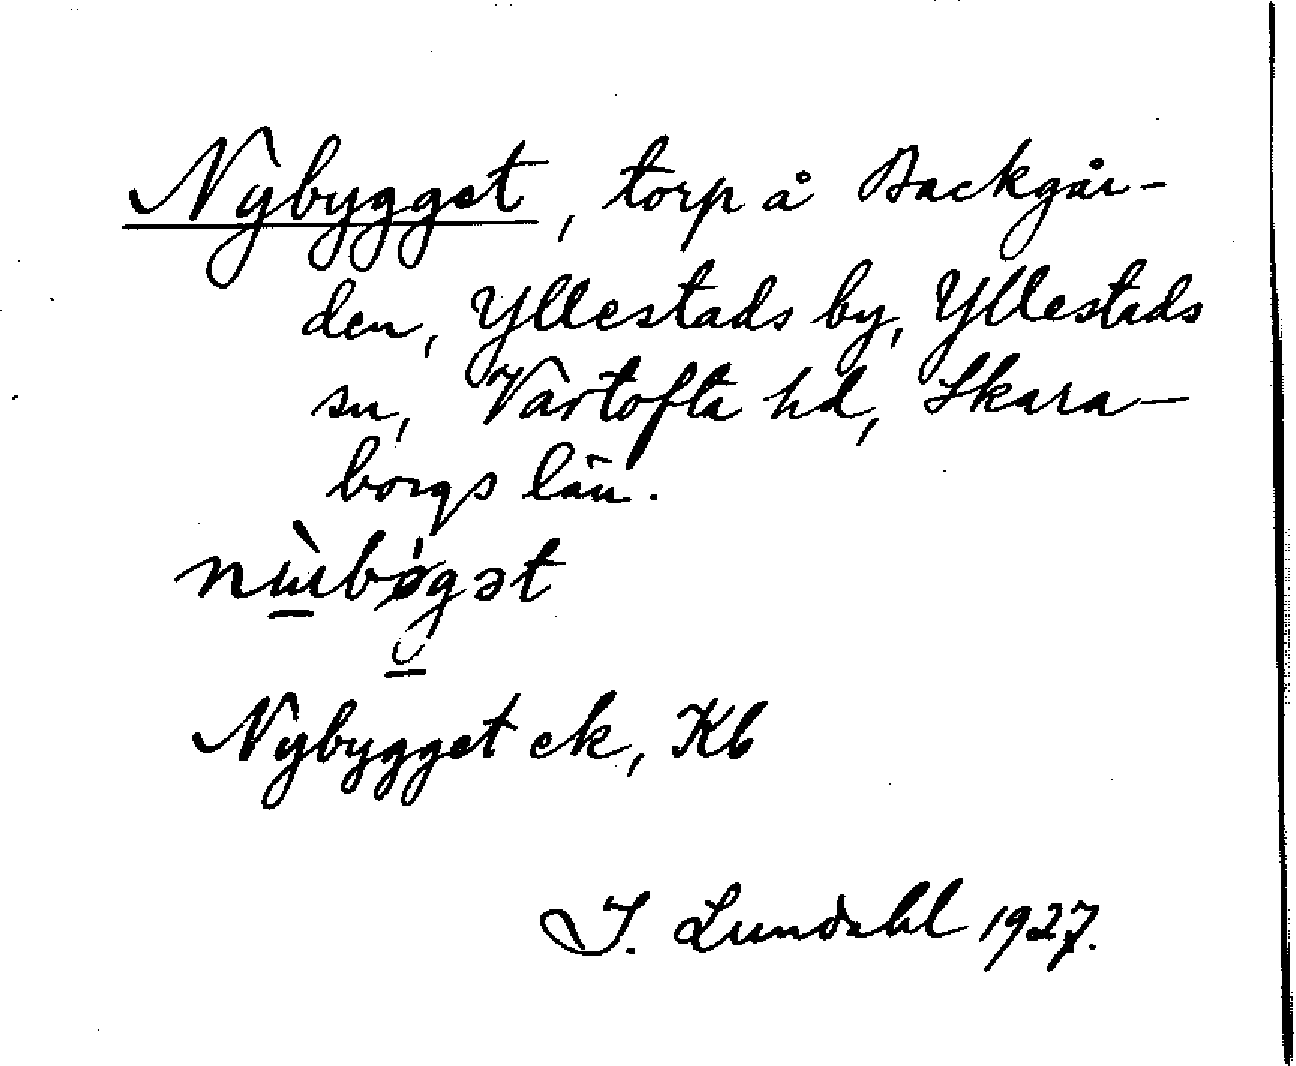 Nybygget, torp å Backgår-
den, Yllestads by, Yllestads
sn, Vartofta hd, Skara-
borgs län.
Nybygget ek, Kb
I. Lundahl 1927.